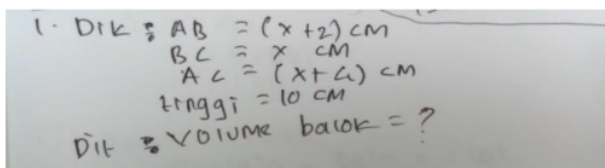 1. Dik : AB = (x+2) cm
BC = x cm
AC = (x+4) cm
tinggi = 10 cm
Dit : volume balok = ?